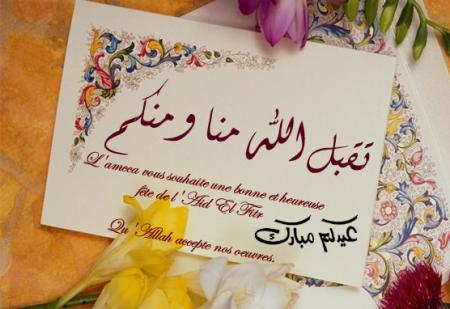 تقبل الله منا ومنكم
L'ameca vous souhaite une bonne et heureuse
fête de l'Aid El Fitr
عيدكم مبارك
Qu'Allah accepte nos oeuvres.